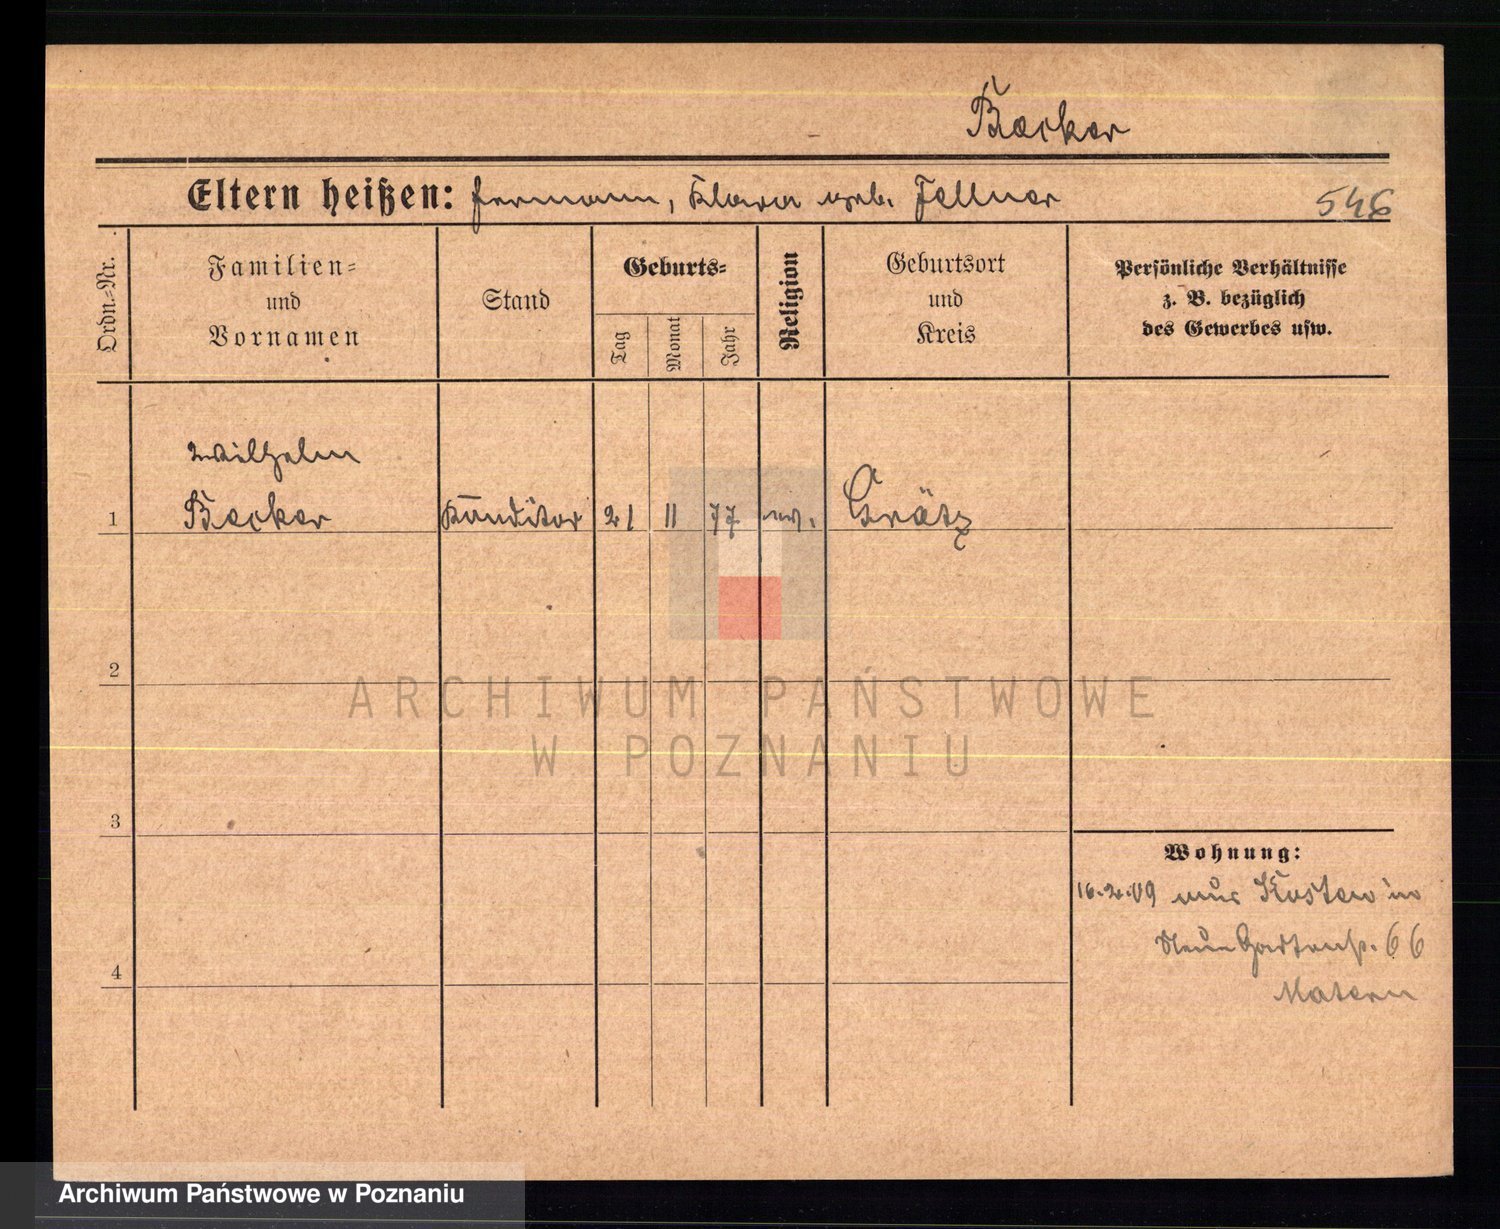 Becker
Eltern heißen: Hermann, Klara geb. Fellner
546
Ordn.=Nr.
Familien=
und
Vornamen
Stand
Geburts=
Tag
Monat
Jahr
Religion
Geburtsort
und
Kreis
Persönliche Verhältnisse
z. B. bezüglich
des Gewerbes usw.
Wilhelm
1 Becker Konditor 21 11 77 ev. Grätz
2
ARCHIWUM PAŃSTWOWE
W POZNANIU
3
Wohnung:
16.2.09 aus Kosten in
Neue Gartenstr. 66
4
Matern
Archiwum Państwowe w Poznaniu